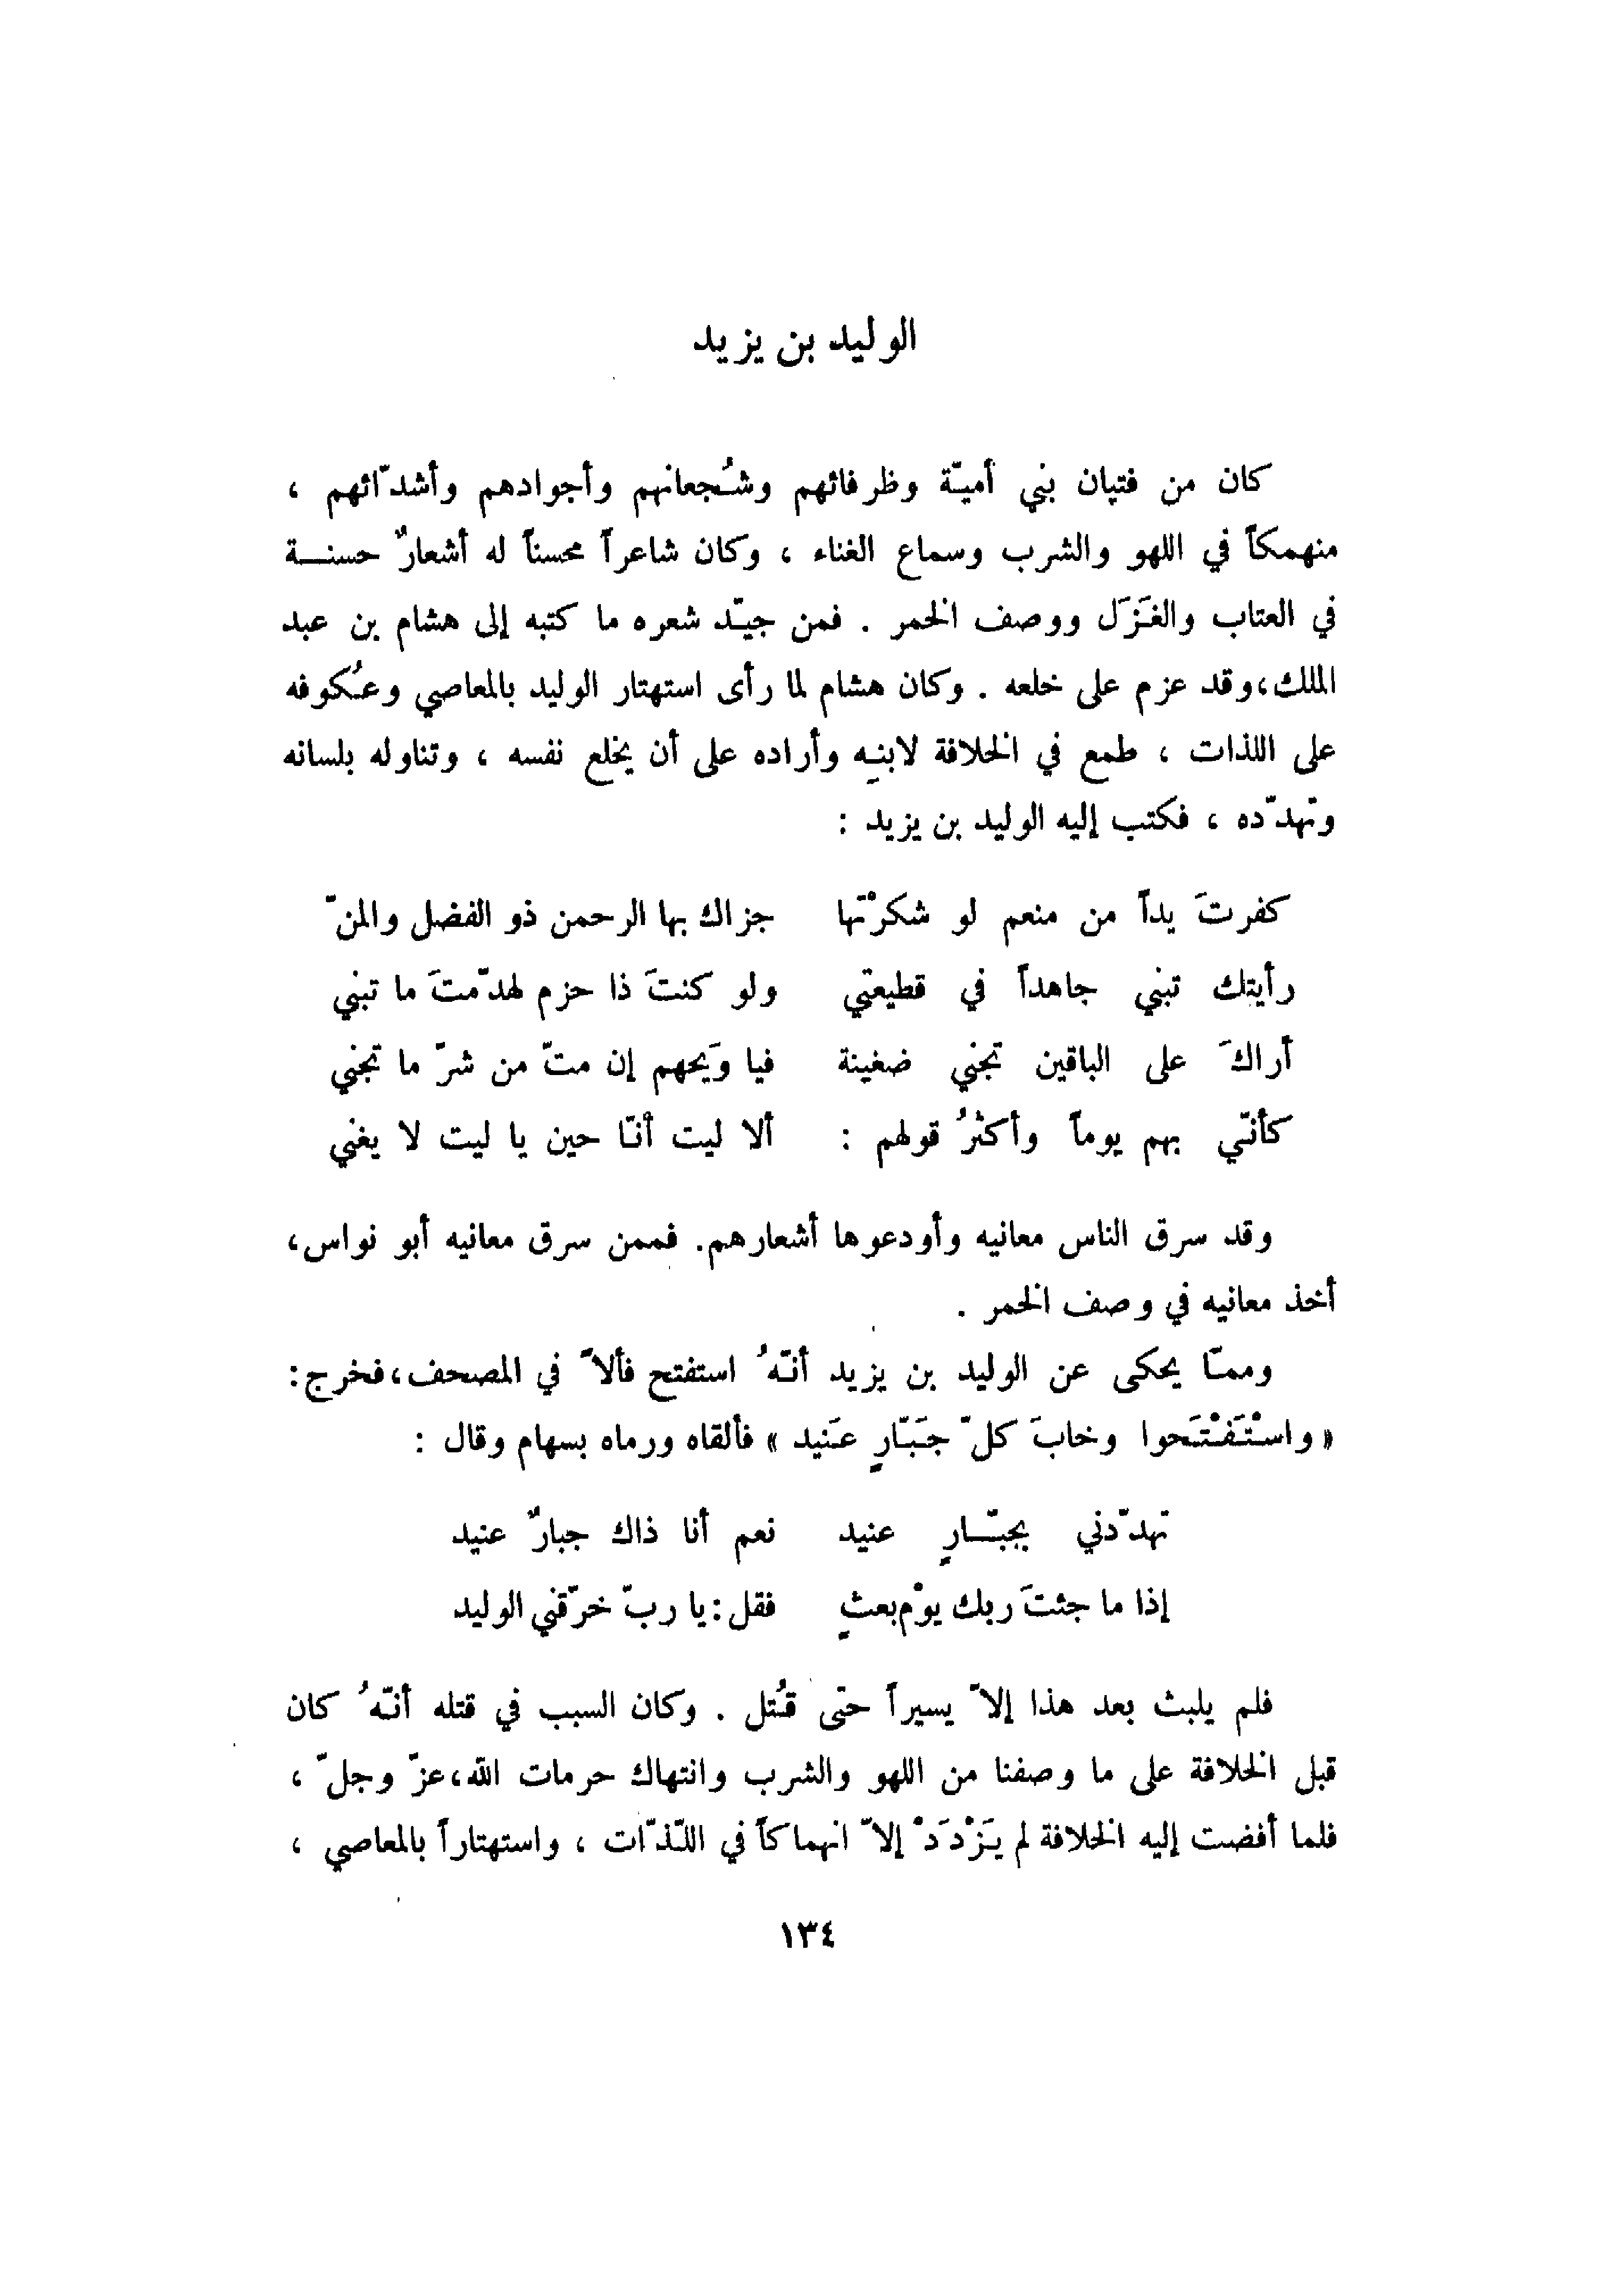 الوليد بن يزيد
كان من فتيان بني أميّة وظرفائهم وشُجعانهم وأجوادهم وأشدّائهم ،
منهمكاً في اللهو والشرب وسماع الغناء ، وكان شاعراً محسناً له أشعارٌ حسنـــة
في العتاب والغَزَل ووصف الخمر . فمن جيّد شعره ما كتبه إلى هشام بن عبد
الملك،وقد عزم على خلعه . وكان هشام لما رأى استهتار الوليد بالمعاصي وعُكوفه
على اللذات ، طمع في الخلافة لابنِه وأراده على أن يخلع نفسه ، وتناوله بلسانه
وتهدّده ، فكتب إليه الوليد بن يزيد :
كفرتَ يداً من منعم لو شكرْتها جزاك بها الرحمن ذو الفضل والمنّ
رأيتك تبني جاهداً في قطيعتي ولو كنتَ ذا حزم لهدّمتَ ما تبني
أراكَ على الباقين تجني ضغينة فيا وَيحهم إن متّ من شرّ ما تجني
كأنّي بهم يوماً وأكثرُ قولهم : ألا ليت أنّا حين يا ليت لا يغني
وقد سرق الناس معانيه وأودعوها أشعارهم. فممن سرق معانيه أبو نواس،
أخذ معانيه في وصف الخمر .
وممّا يحكى عن الوليد بن يزيد أنّهُ استفتح فألاً في المصحف،فخرج:
« واسْتَفْتَحوا وخابَ كلّ جَبّارٍ عَنيد » فألقاه ورماه بسهام وقال :
تهدّدني بجبّـــارٍ عنيد نعم أنا ذاك جبارٌ عنيد
إذا ما جئتَ ربك يوْم بعثٍ فقل:يا ربّ خرّقني الوليد
فلم يلبث بعد هذا إلاّ يسيراً حتى قُتل . وكان السبب في قتله أنّهُ كان
قبل الخلافة على ما وصفنا من اللهو والشرب وانتهاك حرمات الله،عزّ وجلّ ،
فلما أفضت إليه الخلافة لم يَزْدَدْ إلاّ انهماكاً في اللّذّات ، واستهتاراً بالمعاصي ،
١٣٤